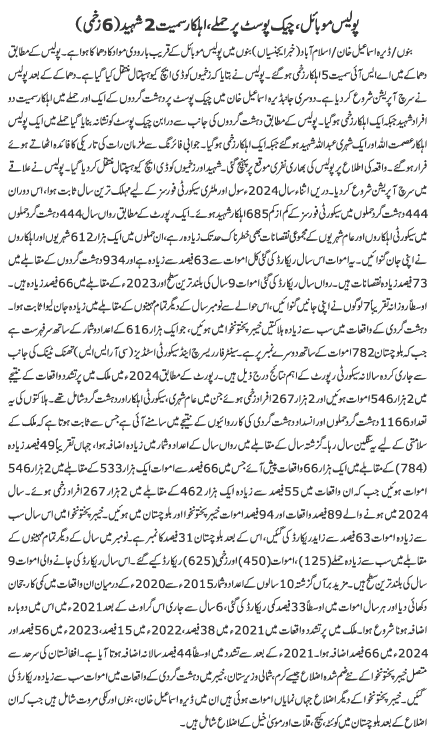 پولیس موبائل، چیک پوسٹ پر حملے، اہلکار سمیت 2 شہید (6 زخمی)
بنوں / ڈیرہ اسماعیل خان / اسلام آباد (خبر ایجنسیاں) بنوں میں پولیس موبائل کے قریب بارودی مواد کا دھماکا ہوا ہے۔ پولیس کے مطابق
دھماکے میں اے ایس آئی سمیت 5 اہلکار زخمی ہو گئے۔ پولیس نے بتایا کہ زخمیوں کو ڈی ایچ کیو ہسپتال منتقل کیا گیا ہے۔ دھماکے کے بعد پولیس
نے سرچ آپریشن شروع کر دیا ہے۔ دوسری جانب ڈیرہ اسماعیل خان میں چیک پوسٹ پر دہشت گردوں کے ایک اور حملے میں اہلکار سمیت دو
افراد شہید جبکہ ایک اہلکار زخمی ہو گیا۔ پولیس کے مطابق دہشت گردوں کی جانب سے درابن چیک پوسٹ کو نشانہ بنایا گیا حملے میں ایک پولیس
اہلکار عصمت اللہ اور ایک شہری عبداللہ شہید ہو گئے جبکہ ایک اہلکار زخمی ہو گیا۔ جوابی فائرنگ سے ملزمان رات کی تاریکی کا فائدہ اٹھاتے ہوئے
فرار ہو گئے۔ واقعہ کی اطلاع پر پولیس کی بھاری نفری موقع پر پہنچ گئی۔ شہید اور زخمیوں کو ڈی ایچ کیو ہسپتال منتقل کر دیا گیا۔ پولیس نے علاقے
میں سرچ آپریشن شروع کر دیا۔ دریں اثناء سال 2024ء سول اور ملٹری سکیورٹی فورسز کے لیے مہلک ترین سال ثابت ہوا، اس دوران
444 دہشت گرد حملوں میں سیکورٹی فورسز کے کم از کم 685 اہلکار شہید ہوئے۔ ایک رپورٹ کے مطابق رواں سال 444 دہشت گرد حملوں
میں سیکورٹی اہلکاروں اور عام شہریوں کے مجموعی نقصانات بھی خطرناک حد تک زیادہ رہے، ان حملوں میں ایک ہزار 612 شہریوں اور اہلکاروں
نے اپنی جان گنوائیں۔ یہ اموات اس سال ریکارڈ کی گئی کل اموات سے 63 فیصد سے زیادہ ہے اور 934 دہشت گردوں کے مقابلے میں
73 فیصد زیادہ نقصانات ہیں۔ رواں سال ریکارڈ کی گئی اموات 9 سال کی بلند ترین سطح اور 2023ء کے مقابلے میں 66 فیصد زیادہ ہیں۔
اوسطاً روزانہ تقریباً 7 لوگوں نے اپنی جانیں گنوائیں، اس حوالے سے نومبر سال کے دیگر تمام مہینوں کے مقابلے میں زیادہ جان لیوا ثابت ہوا۔
دہشت گردی کے واقعات میں سب سے زیادہ ہلاکتیں خیبر پختونخوا میں ہوئیں، جو ایک ہزار 616 کے اعداد و شمار کے ساتھ سر فہرست ہے
جب کہ بلوچستان 782 اموات کے ساتھ دوسرے نمبر پر ہے۔ سینٹر فار ریسرچ اینڈ سیکورٹی اسٹڈیز (سی آر ایس ایس) تھنک ٹینک کی جانب
سے جاری کردہ سالانہ سیکورٹی رپورٹ کے اہم نتائج درج ذیل ہیں۔ رپورٹ کے مطابق 2024ء میں ملک میں پر تشدد واقعات کے نتیجے
میں 2 ہزار 546 اموات ہوئیں اور 2 ہزار 267 افراد زخمی ہوئے جن میں عام شہری، سیکورٹی اہلکار اور دہشت گرد شامل تھے۔ ہلاکتوں کی یہ
تعداد 1166 دہشت گرد حملوں اور انسداد دہشت گردی کی کارروائیوں کے نتیجے میں سامنے آئی ہے جس سے ثابت ہوتا ہے کہ ملک کے
سلامتی کے لیے یہ سنگین سال رہا۔ گزشتہ سال کے مقابلے میں رواں سال کے اعداد و شمار میں بہت زیادہ اضافہ ہوا، جہاں تقریباً 49 فیصد زیادہ
(784) کے مقابلے میں ایک ہزار 66 واقعات پیش آئے جس میں 66 فیصد سے زیادہ اموات ایک ہزار 533 کے مقابلے میں 2 ہزار 546
اموات ہوئیں جب کہ ان واقعات میں 55 فیصد سے زیادہ ایک ہزار 462 کے مقابلے میں 2 ہزار 267 افراد زخمی ہوئے۔ سال
2024 میں ہونے والے 89 فیصد واقعات اور 94 فیصد اموات خیبر پختونخوا اور بلوچستان میں ہوئیں۔ خیبر پختونخوا میں اس سال سب
سے زیادہ اموات 63 فیصد سے زائد ریکارڈ کی گئیں، اس کے بعد بلوچستان 31 فیصد کا نمبر ہے۔ نومبر میں سال کے دیگر تمام مہینوں کے
مقابلے میں سب سے زیادہ حملے (125)، اموات (450) اور زخمی (625) ریکارڈ کیے گئے۔ اس سال ریکارڈ کی جانے والی اموات 9
سال کی بلند ترین سطح ہیں۔ مزید برآں گزشتہ 10 سالوں کے اعداد و شمار 2015ء سے 2020ء کے درمیان ان واقعات میں کمی کا رجحان
دکھائی دیا اور ہر سال اموات میں اوسطاً 33 فیصد کمی ریکارڈ کی گئی، 6 سال سے جاری اس گراوٹ کے بعد 2021ء میں اس میں دوبارہ
اضافہ ہونا شروع ہوا۔ ملک میں پر تشدد واقعات میں 2021ء میں 38 فیصد، 2022ء میں 15 فیصد، 2023ء میں 56 فیصد اور
2024ء میں 66 فیصد اضافہ ہوا۔ 2021 کے بعد سے ان واقعات میں اوسطاً 44 فیصد سالانہ اضافہ ہوتا آیا ہے۔ افغانستان کی سرحد سے
متصل خیبر پختونخوا کے نئے ضم شدہ اضلاع جیسے کرم، شمالی وزیرستان، خیبر اور جنوبی وزیرستان میں دہشت گردی کے واقعات میں سب سے زیادہ ریکارڈ کی
گئیں۔ خیبر پختونخوا کے دیگر اضلاع جہاں نمایاں اموات ہوئی ہیں ان میں ڈیرہ اسماعیل خان، بنوں اور لکی مروت شامل ہیں جب کہ ان
اضلاع کے بعد بلوچستان میں کوئٹہ، کیچ، قلات اور موسیٰ خیل کے اضلاع شامل ہیں۔